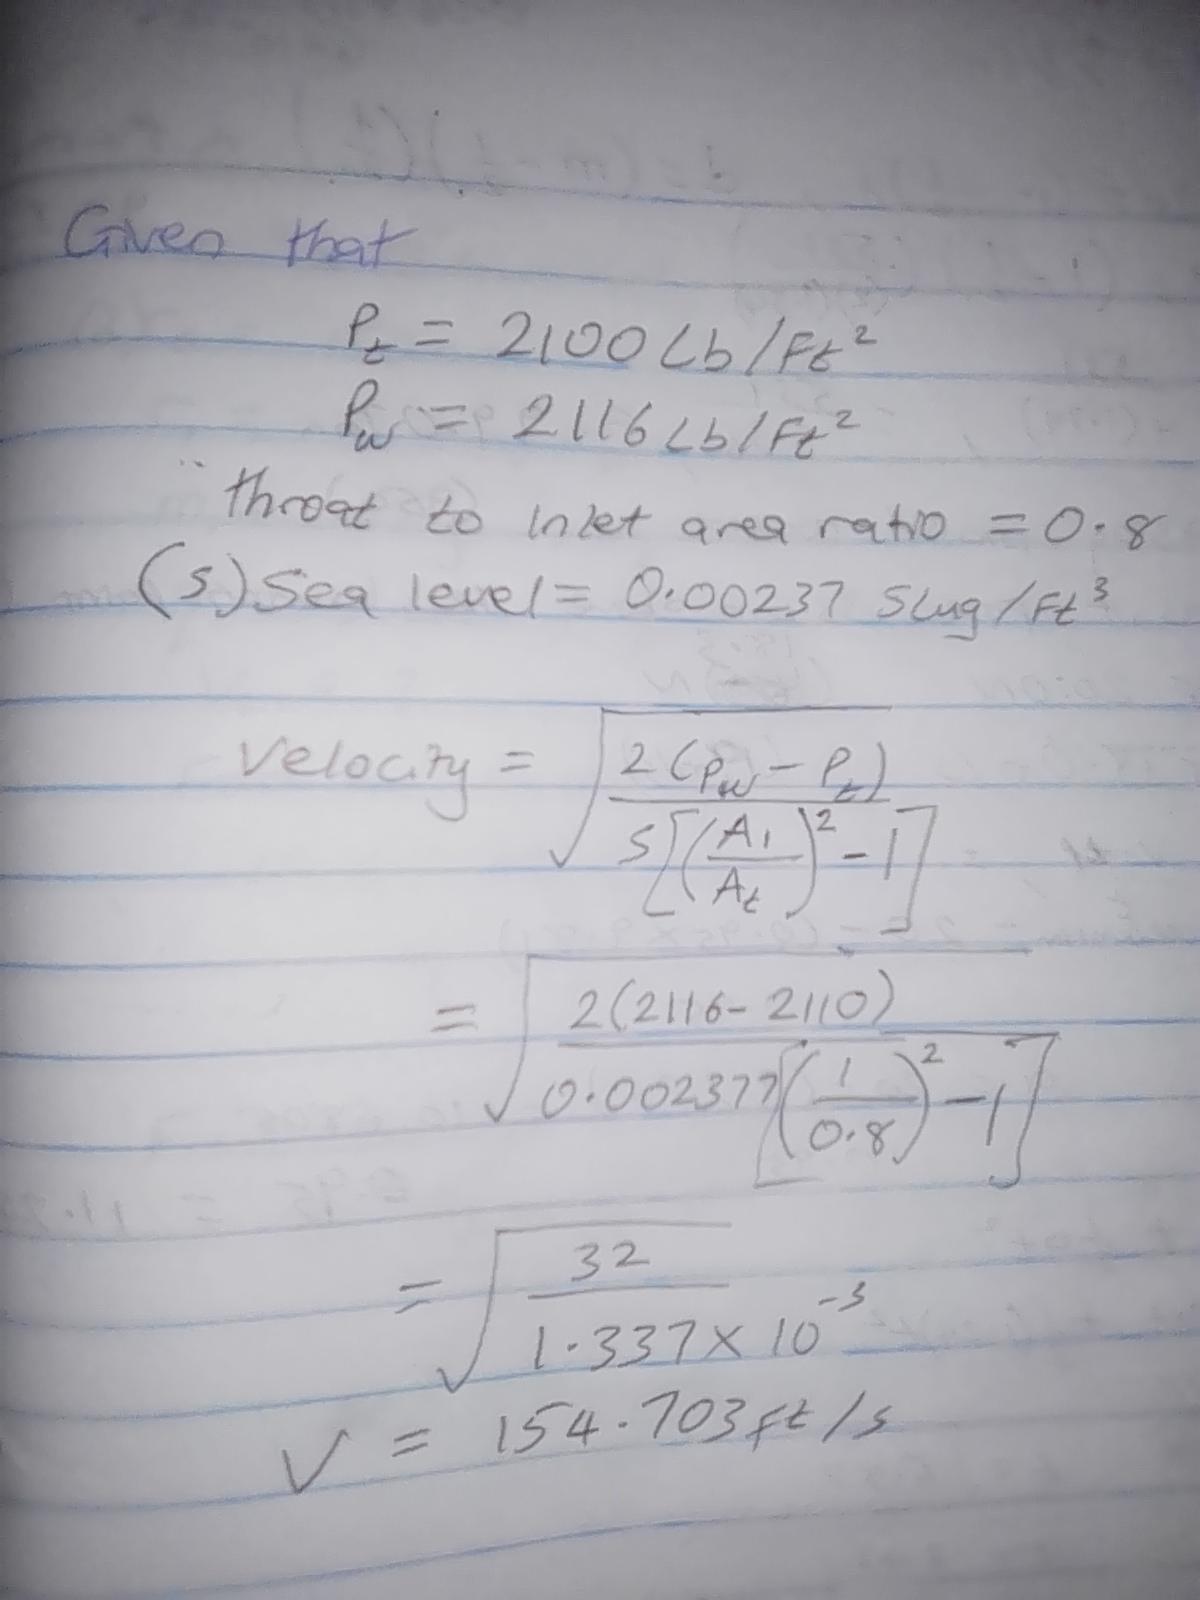 Given that
P_t = 2100 Lb/Ft²
P_w = 2116 Lb/Ft²
throat to Inlet area ratio = 0.8
(s) Sea level = 0.00237 Slug/Ft³
Velocity = √(2(P_w - P_t) / S[(A₁/A_t)² - 1])
= √(2(2116 - 2110) / 0.002377[(1/0.8)² - 1])
= √(32 / 1.337 × 10⁻³)
V = 154.703 ft/s